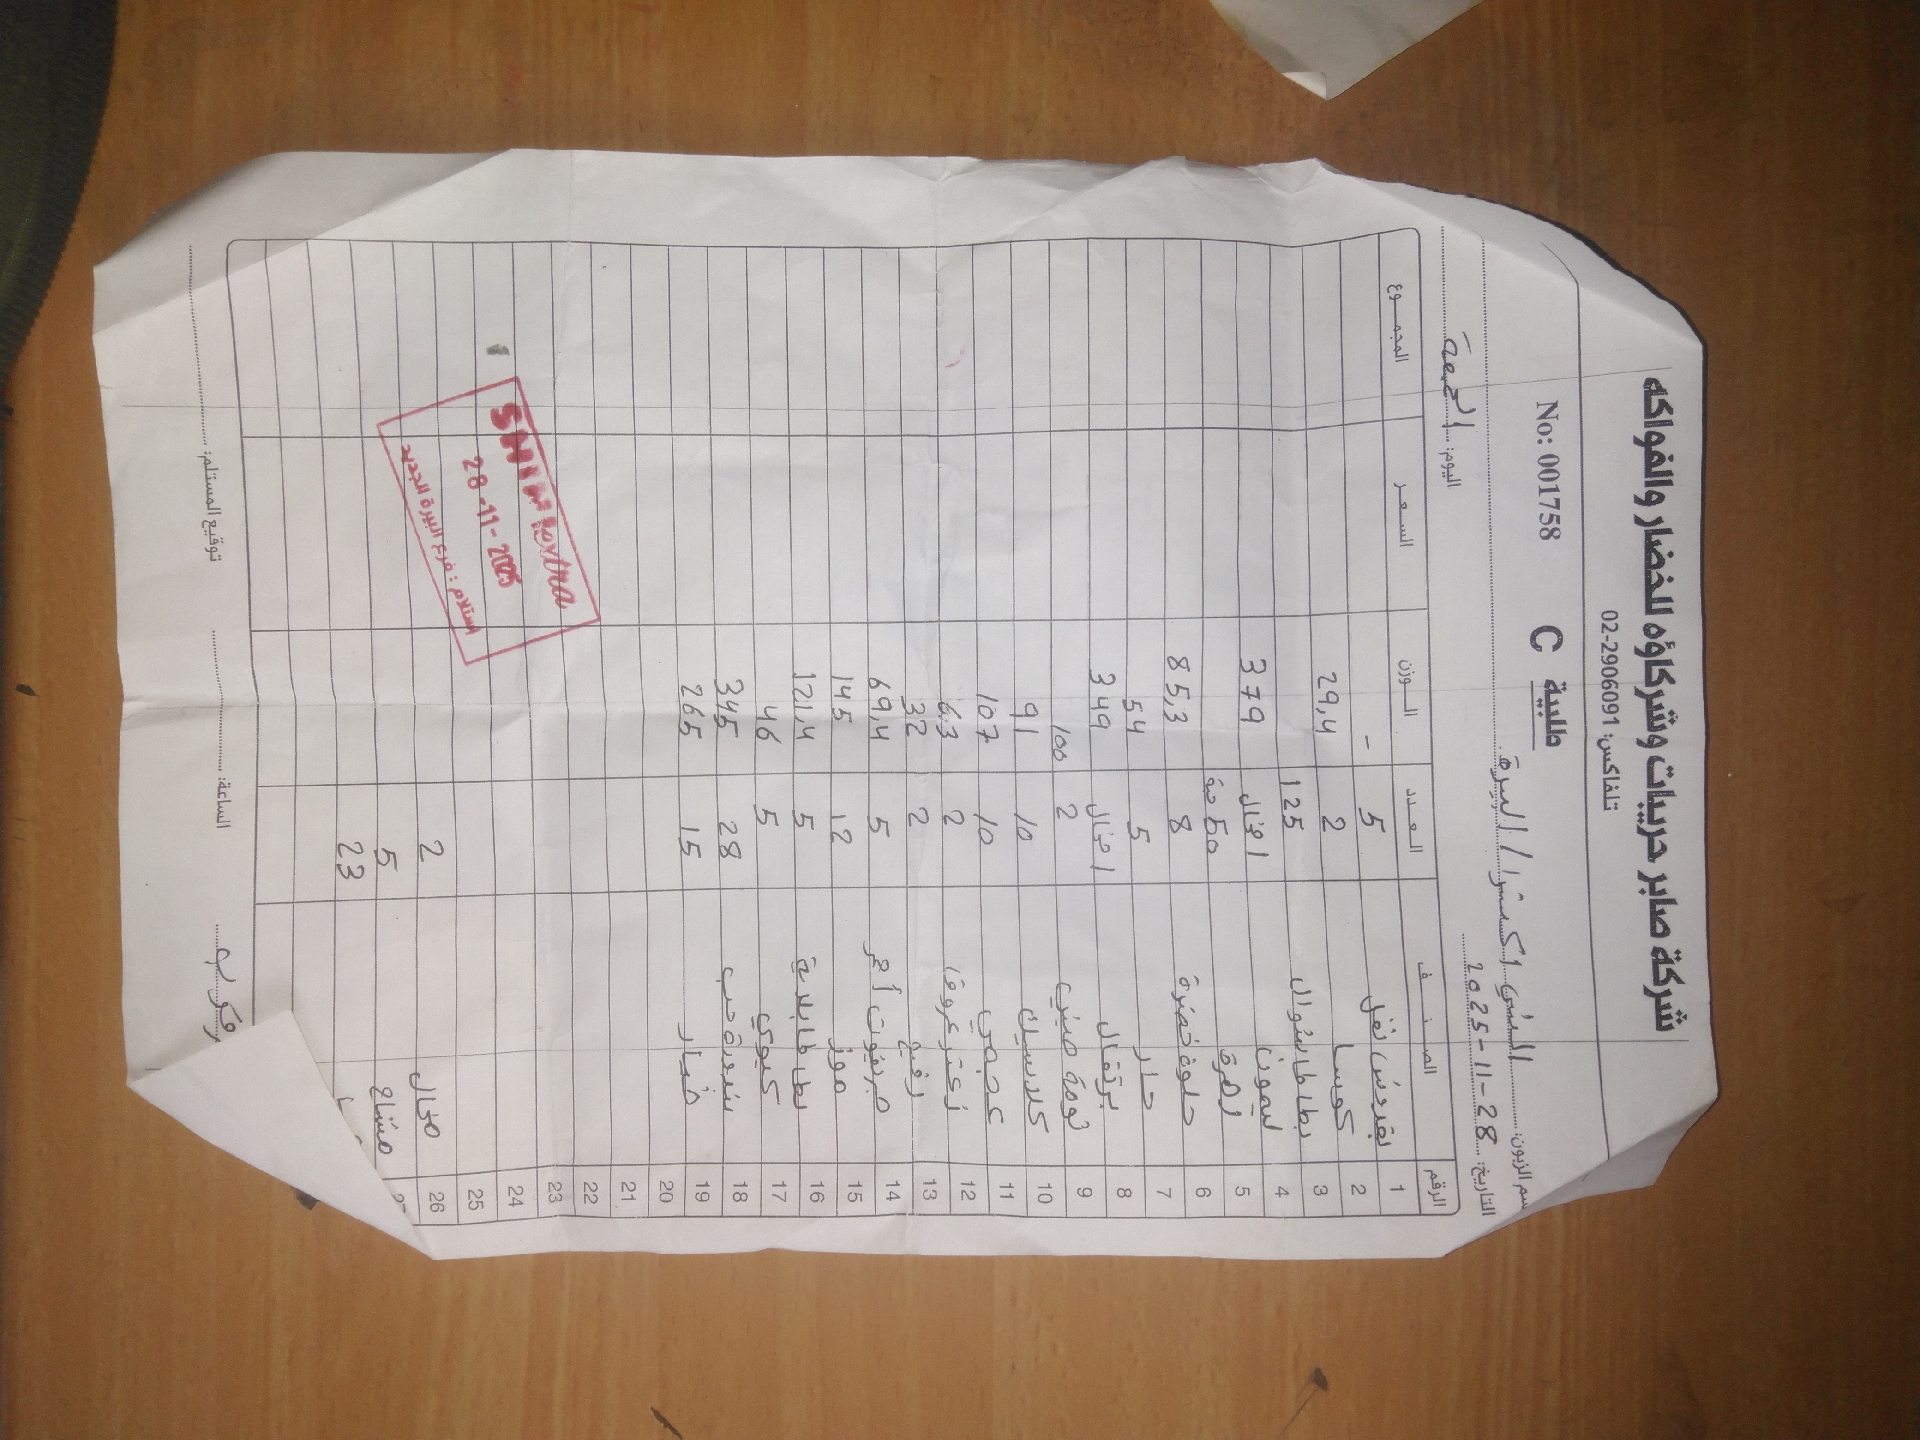 شركة صابر حربيات وشركاؤه للخضار والفواكه
تلفاكس: 02-2906091
No: 001758 طلبية C
سم الزبون: الشني اكسترا / البيرة
التاريخ: 28-11-2025 اليوم: الجمعة
الرقم الصنف العدد الوزن السعر المجموع
1 بقدونس نقل 5 -
2 كوسا 2 29,4
3 بطاطا شوال 125
4 ليمون 379
5 زهرة
6 حلوة خضرة 8 85,3
7 حار 5 54
8 برتقال 349
9 ثومة 2 100
10 كلاسيك 10 91
11 عجمي 10 107
12 زعتر 2 63
13 رفيع 2 32
14 جريفوت أحمر 5 69,4
15 موز 12 145
16 بطاطا 5 121,4
17 كيوي 5 46
18 بندورة حب 28 345
19 خيار 15 265
20
21
22
23
24
25
26 2
5
23
SHINI extra
28-11-2025
استلام: فرع البيرة الجديد
الساعة: توقيع المستلم: